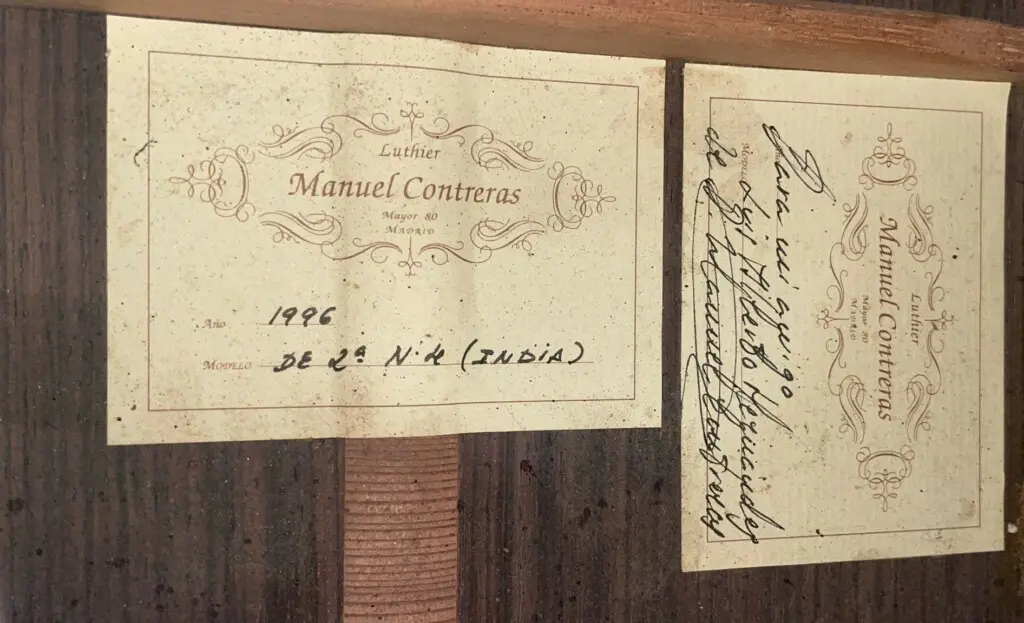 Luthier
Manuel Contreras
Mayor 80
MADRID
Año 1996
MODELO DE 2ª Nº 4 (INDIA)
Luthier
Manuel Contreras
Mayor 80
MADRID
Para mi amigo
Luis Alberto
MODELO
de D. Manuel Contreras